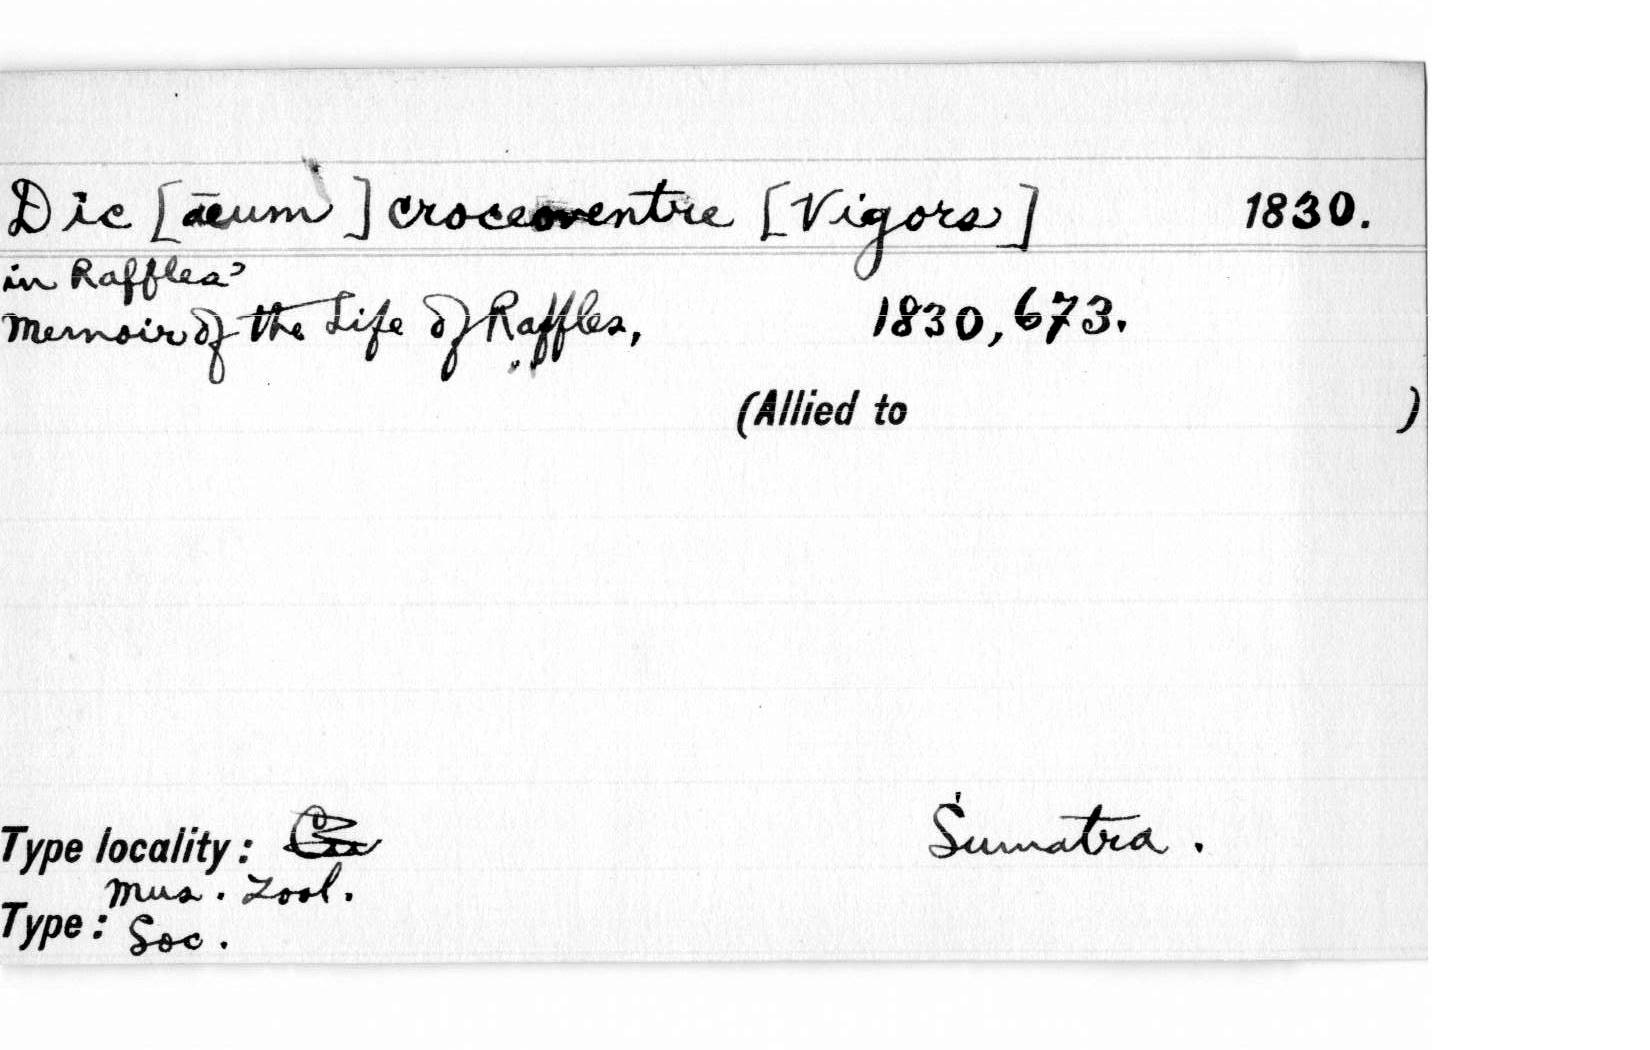 Dic [aeum] croceoventre [Vigors] 1830.
in Raffles'
Memoir of the Life of Raffles, 1830, 673.
(Allied to )
Type locality: Sumatra.
Mus. Zool.
Type: Soc.